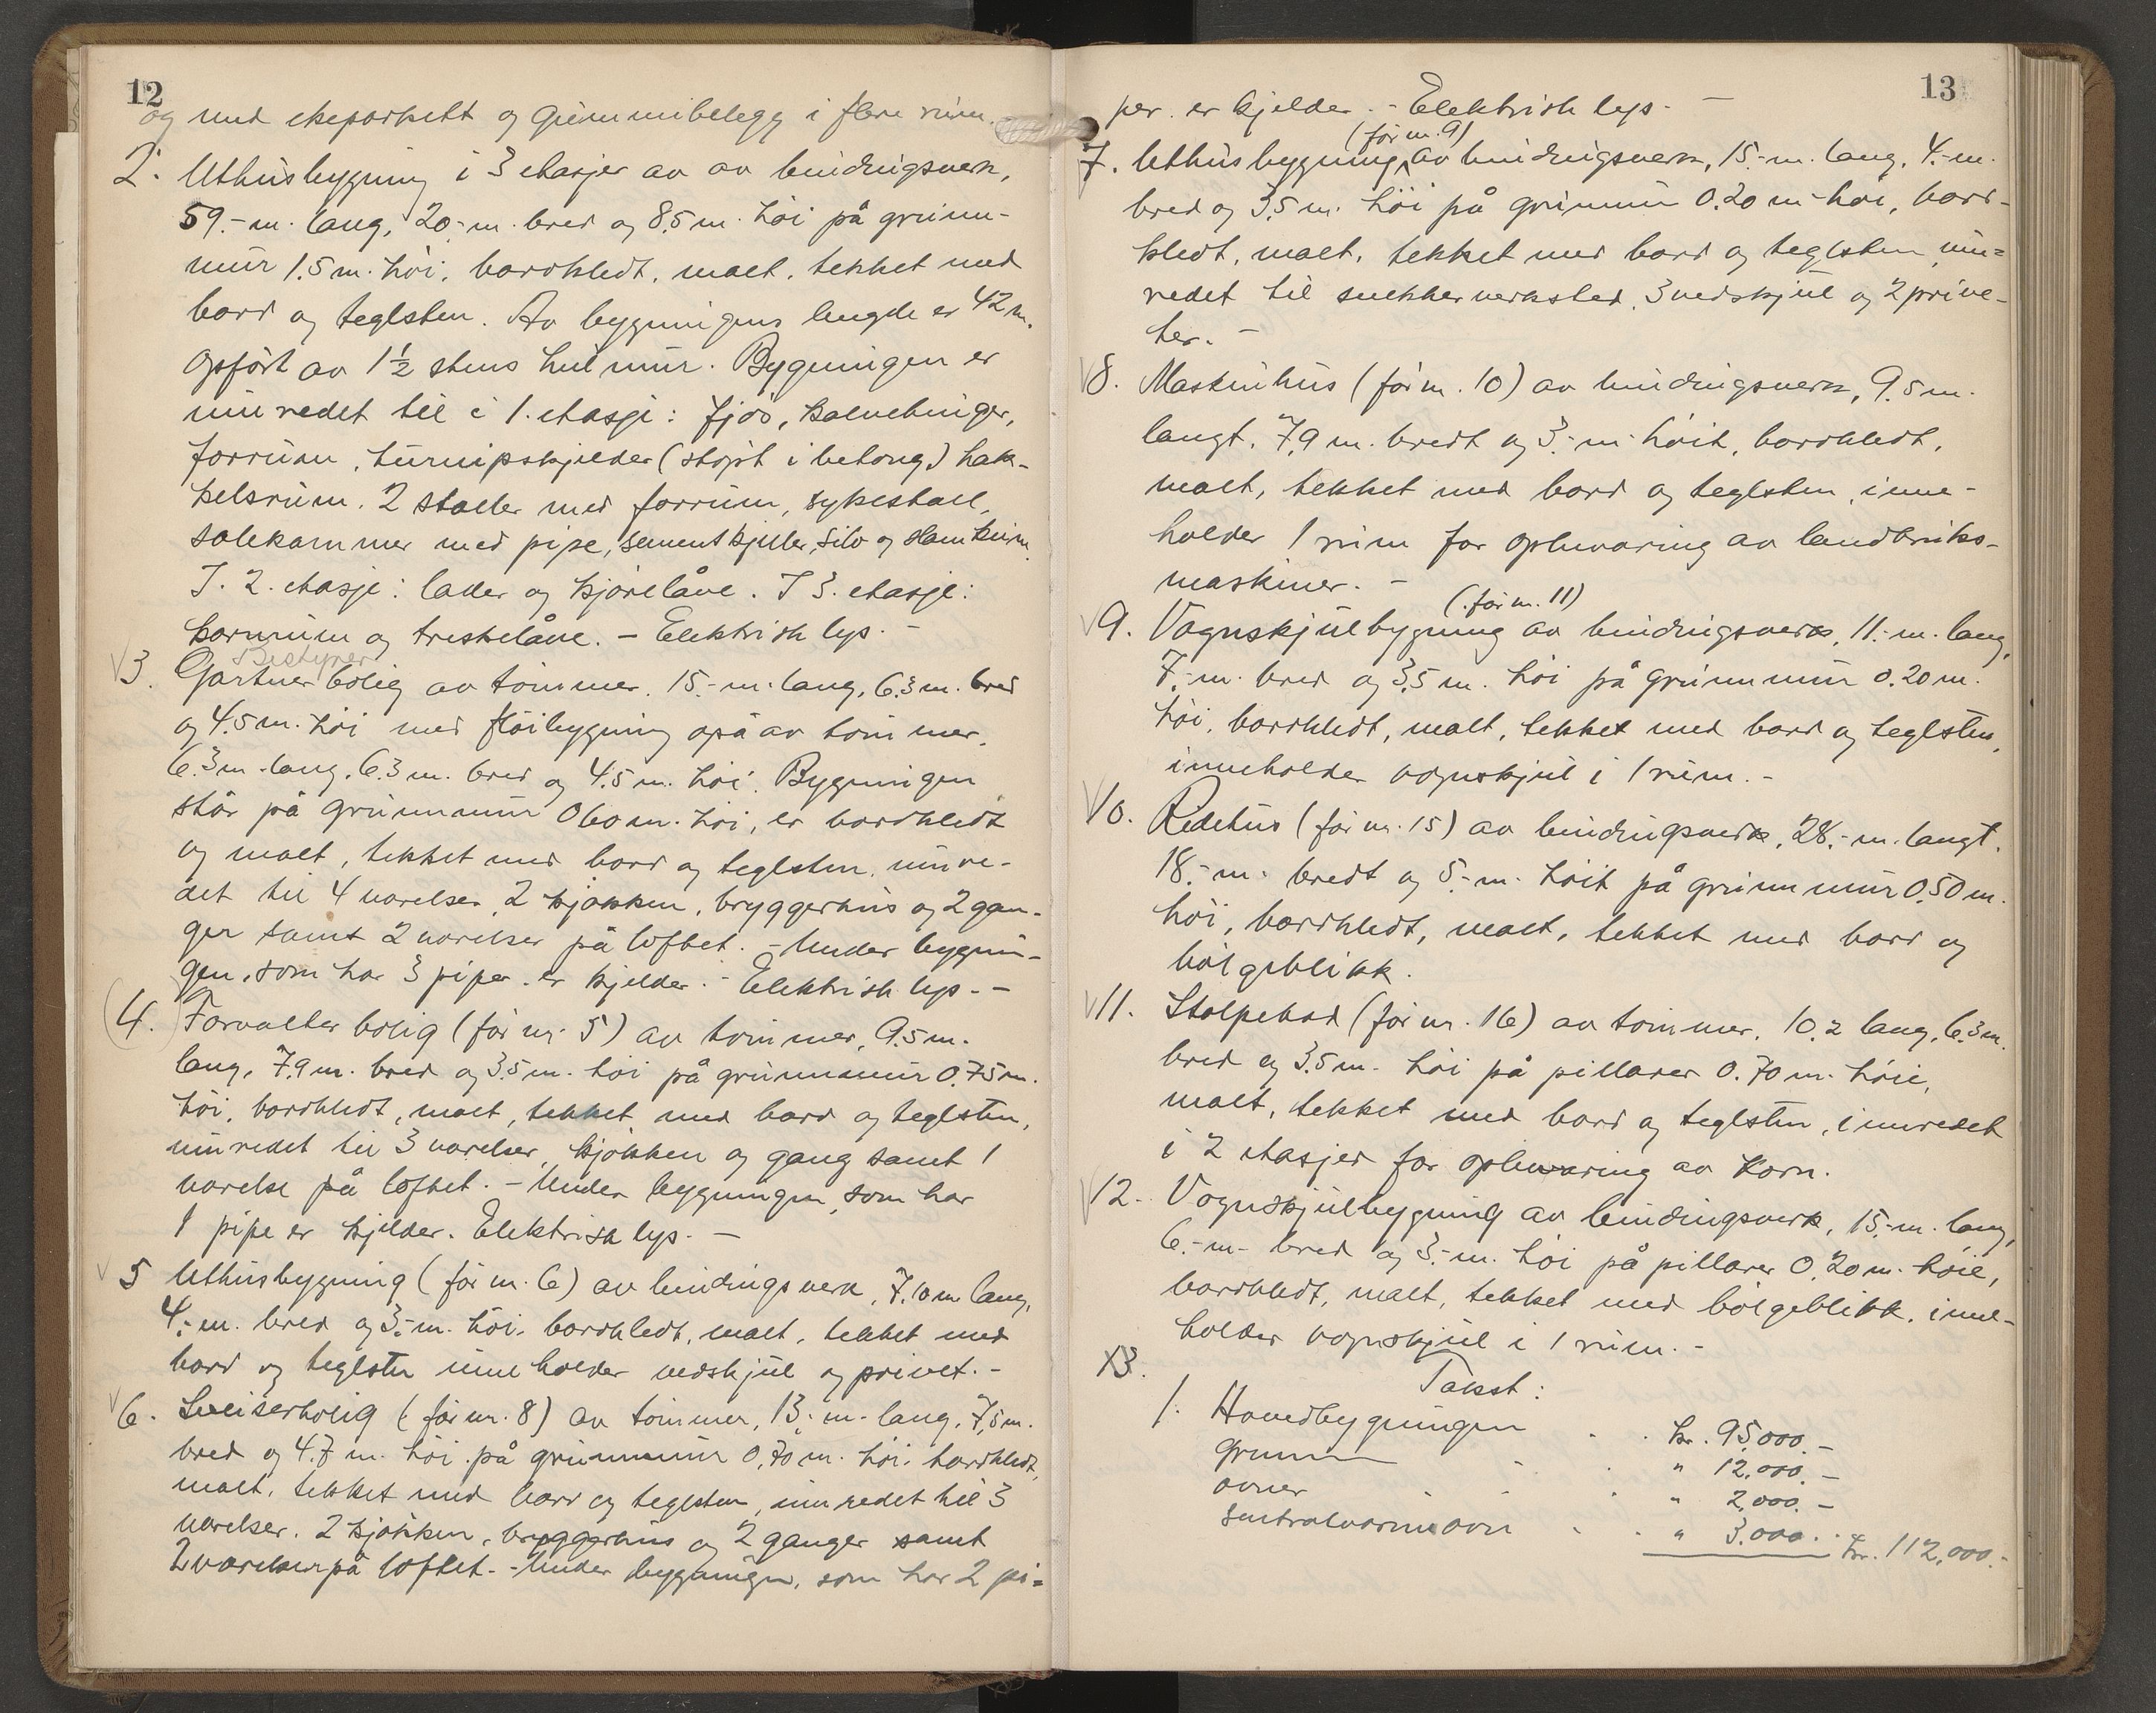 12
og med ekeparkett og gummibelegg i flere rum.
2. Uthusbygning i 3 etasjer av av bindingsverk,
59.-m. lang, 20.-m. bred og 8.5 m. høi på grunn-
mur 1.5 m. høi, bordkledt, malt, tekket med
bord og teglsten. Av bygningens lengde er 42 m.
opført av 1½ stens hulmur. Bygningen er
innredet til i 1. etasje: fjøs, kalvebinger,
forrum, turnipskjelder (støpt i betong) hak-
kelsrum. 2 staller med forrum, sykestall,
salekammer med pipe, sementkjeller, silo og
I. 2. etasje: lader og kjørelåve. I 3. etasje:
kornrum og treskelåve. - Elektrisk lys. -
Bestyrer
3. Gartnerbolig av tømmer. 15.-m. lang, 6.3 m. bred
og 4.5 m. høi med fløibygning også av tømmer,
6.3 m. lang, 6.3 m. bred og 4.5 m. høi. Bygningen
står på grunnmur 0.60 m. høi, er bordkledt
og malt, tekket med bord og teglsten, innre-
det til 4 værelser, 2 kjøkken, bryggerhus og 2 gan-
ger samt 2 værelser på loftet. - Under bygnin-
gen, som har 3 piper. er kjelder. - Elektrisk lys. -
(4.) Forvalterbolig (før nr. 5) av tømmer, 9.5 m.
lang, 7.9 m. bred og 3.5 m. høi på grunnmur 0.75 m.
høi, bordkledt, malt, tekket med bord og teglsten,
innredet til 3 værelser, kjøkken og gang samt 1
værelse på loftet. - Under bygningen, som har
1 pipe er kjelder. Elektrisk lys. -
5 Uthusbygning (før nr. 6) av bindingsverk, 7.10 m lang,
4.-m. bred og 3.-m. høi, bordkledt, malt, tekket med
bord og teglsten inneholder vedskjul og privet. -
6. Sveiserbolig (før nr. 8) av tømmer, 13.-m. lang, 7.5 m.
bred og 4.7 m. høi på grunnmur 0.70 m. høi. bordkledt,
malt, tekket med bord og teglsten, innredet til 3
værelser. 2 kjøkken, bryggerhus og 2 ganger samt
2 værelser på loftet. - Under bygningen, som har 2 pi-
13
per. er kjelder. - Elektrisk lys. -
(før nr. 9)
7. Uthusbygning av bindingsverk, 15.-m. lang, 4.-m.
bred og 3.5 m. høi på grunnmur 0.20 m høi, bord-
kledt, malt, tekket med bord og teglsten inn-
redet til snekkerverksted, 3 vedskjul og 2 prive-
ter. -
8. Maskinhus (før nr. 10) av bindingsverk, 9.5 m.
langt, 7.9 m. bredt og 3.-m høit, bordkledt,
malt, tekket med bord og teglsten, inne-
holder 1 rum for opbevaring av landbruks-
maskiner. -
(før nr. 11)
9. Vognskjulbygning av bindingsverk, 11.-m. lang,
7.-m. bred og 3.5 m. høi på grunnmur 0.20 m.
høi, bordkledt, malt, tekket med bord og teglsten,
inneholder vognskjul i 1 rum. -
10. Redehus (før nr. 15) av bindingsverk, 28.-m. langt,
18.-m. bredt og 5.-m. høit på grunnmur 0.50 m.
høi, bordkledt, malt, tekket med bord og
bølgeblikk.
11. Stolpebod (før nr. 16) av tømmer, 10.2 lang, 6.3 m.
bred og 3.5 m. høi på pillarer 0.70 m. høie,
malt, tekket med bord og teglsten, innredet
i 2 etasjer for opbevaring av korn.
12. Vognskjulbygning av bindingsverk, 15.-m. lang,
6.-m. bred og 3.-m. høi på pillarer 0.20 m. høie,
bordkledt, malt, tekket med bølgeblikk, inne-
holder vognskjul i 1 rum. -
13.
Takst:
1. Hovedbygningen . . kr. 95,000.-
Grunn . . " 12,000.-
ovner . . . " 2,000.-
Sentralvarmeovn . . " 3,000.- kr. 112,000.-